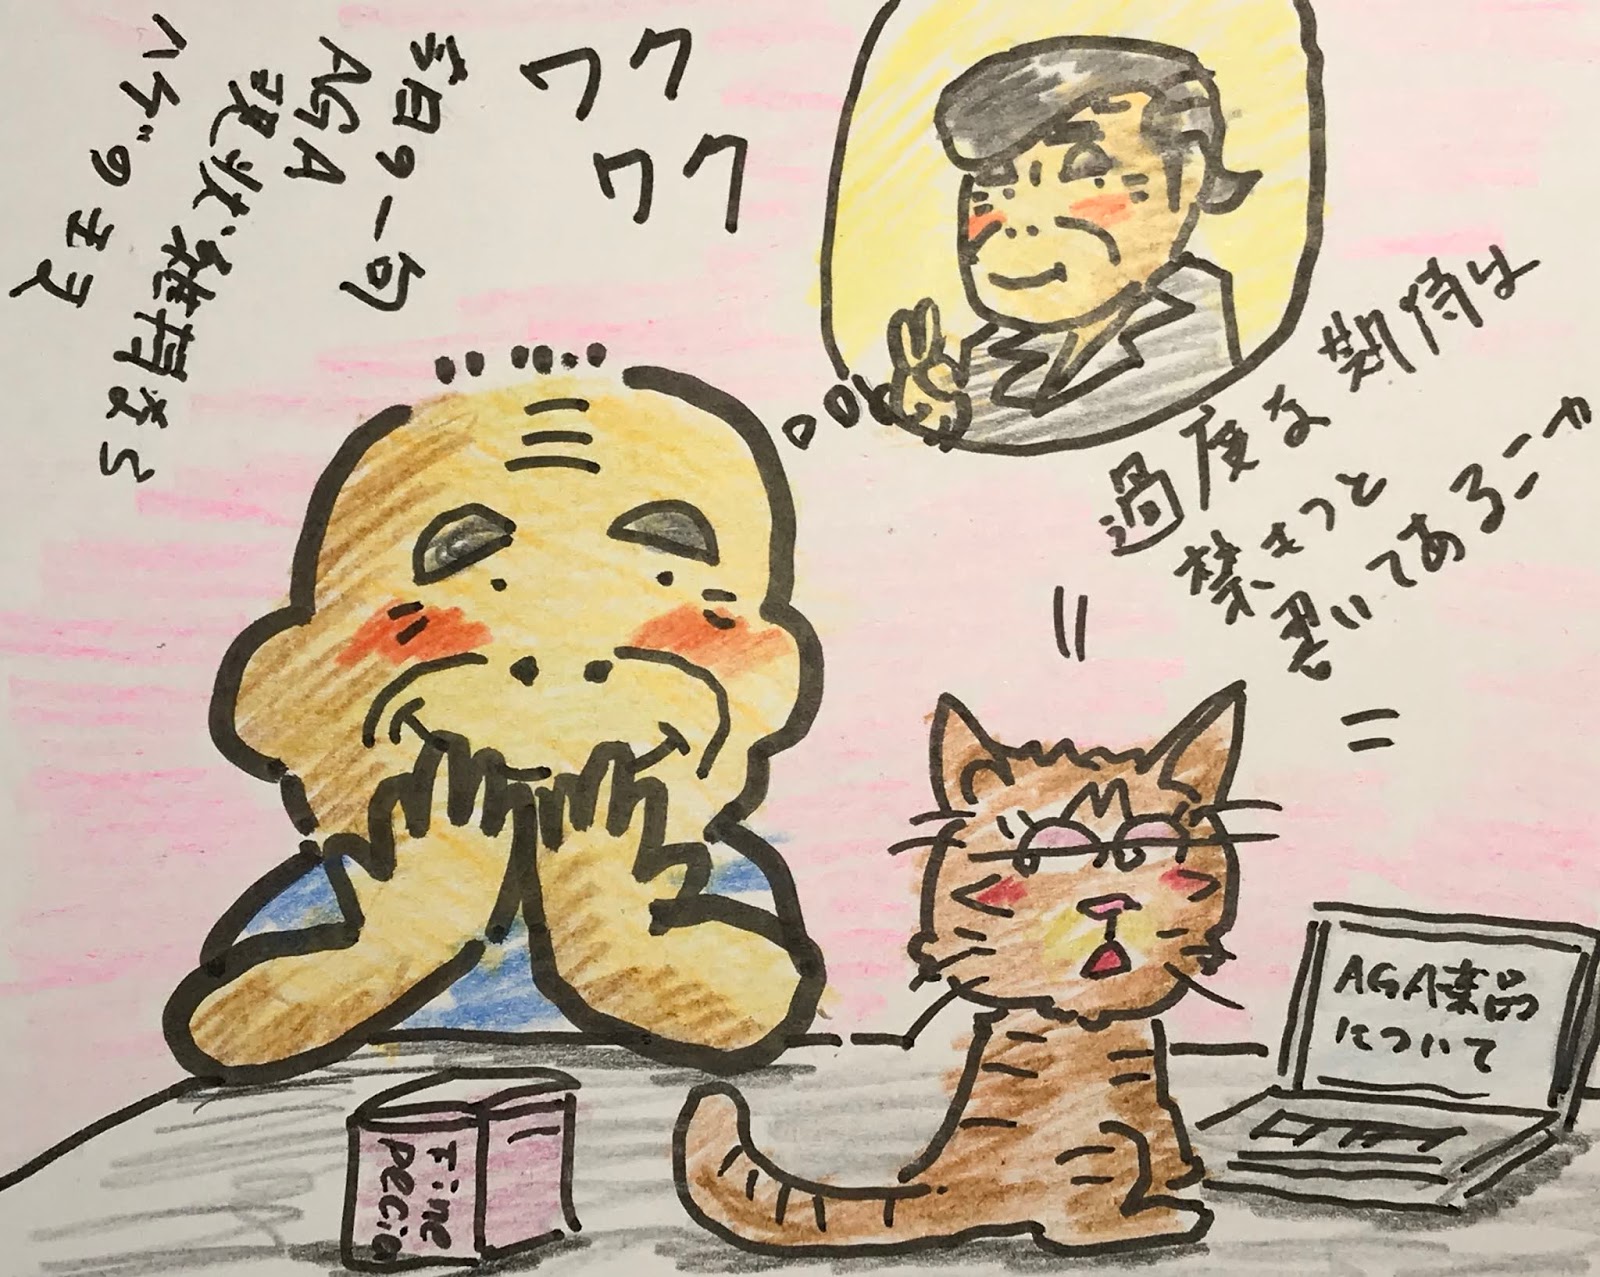 今日の一句
AGA
現状維持なら
ハゲのまま
ワク
ワク
過度な期待は
禁もつと
書いてあるニャ
AGA薬品
について
Fine
pecia